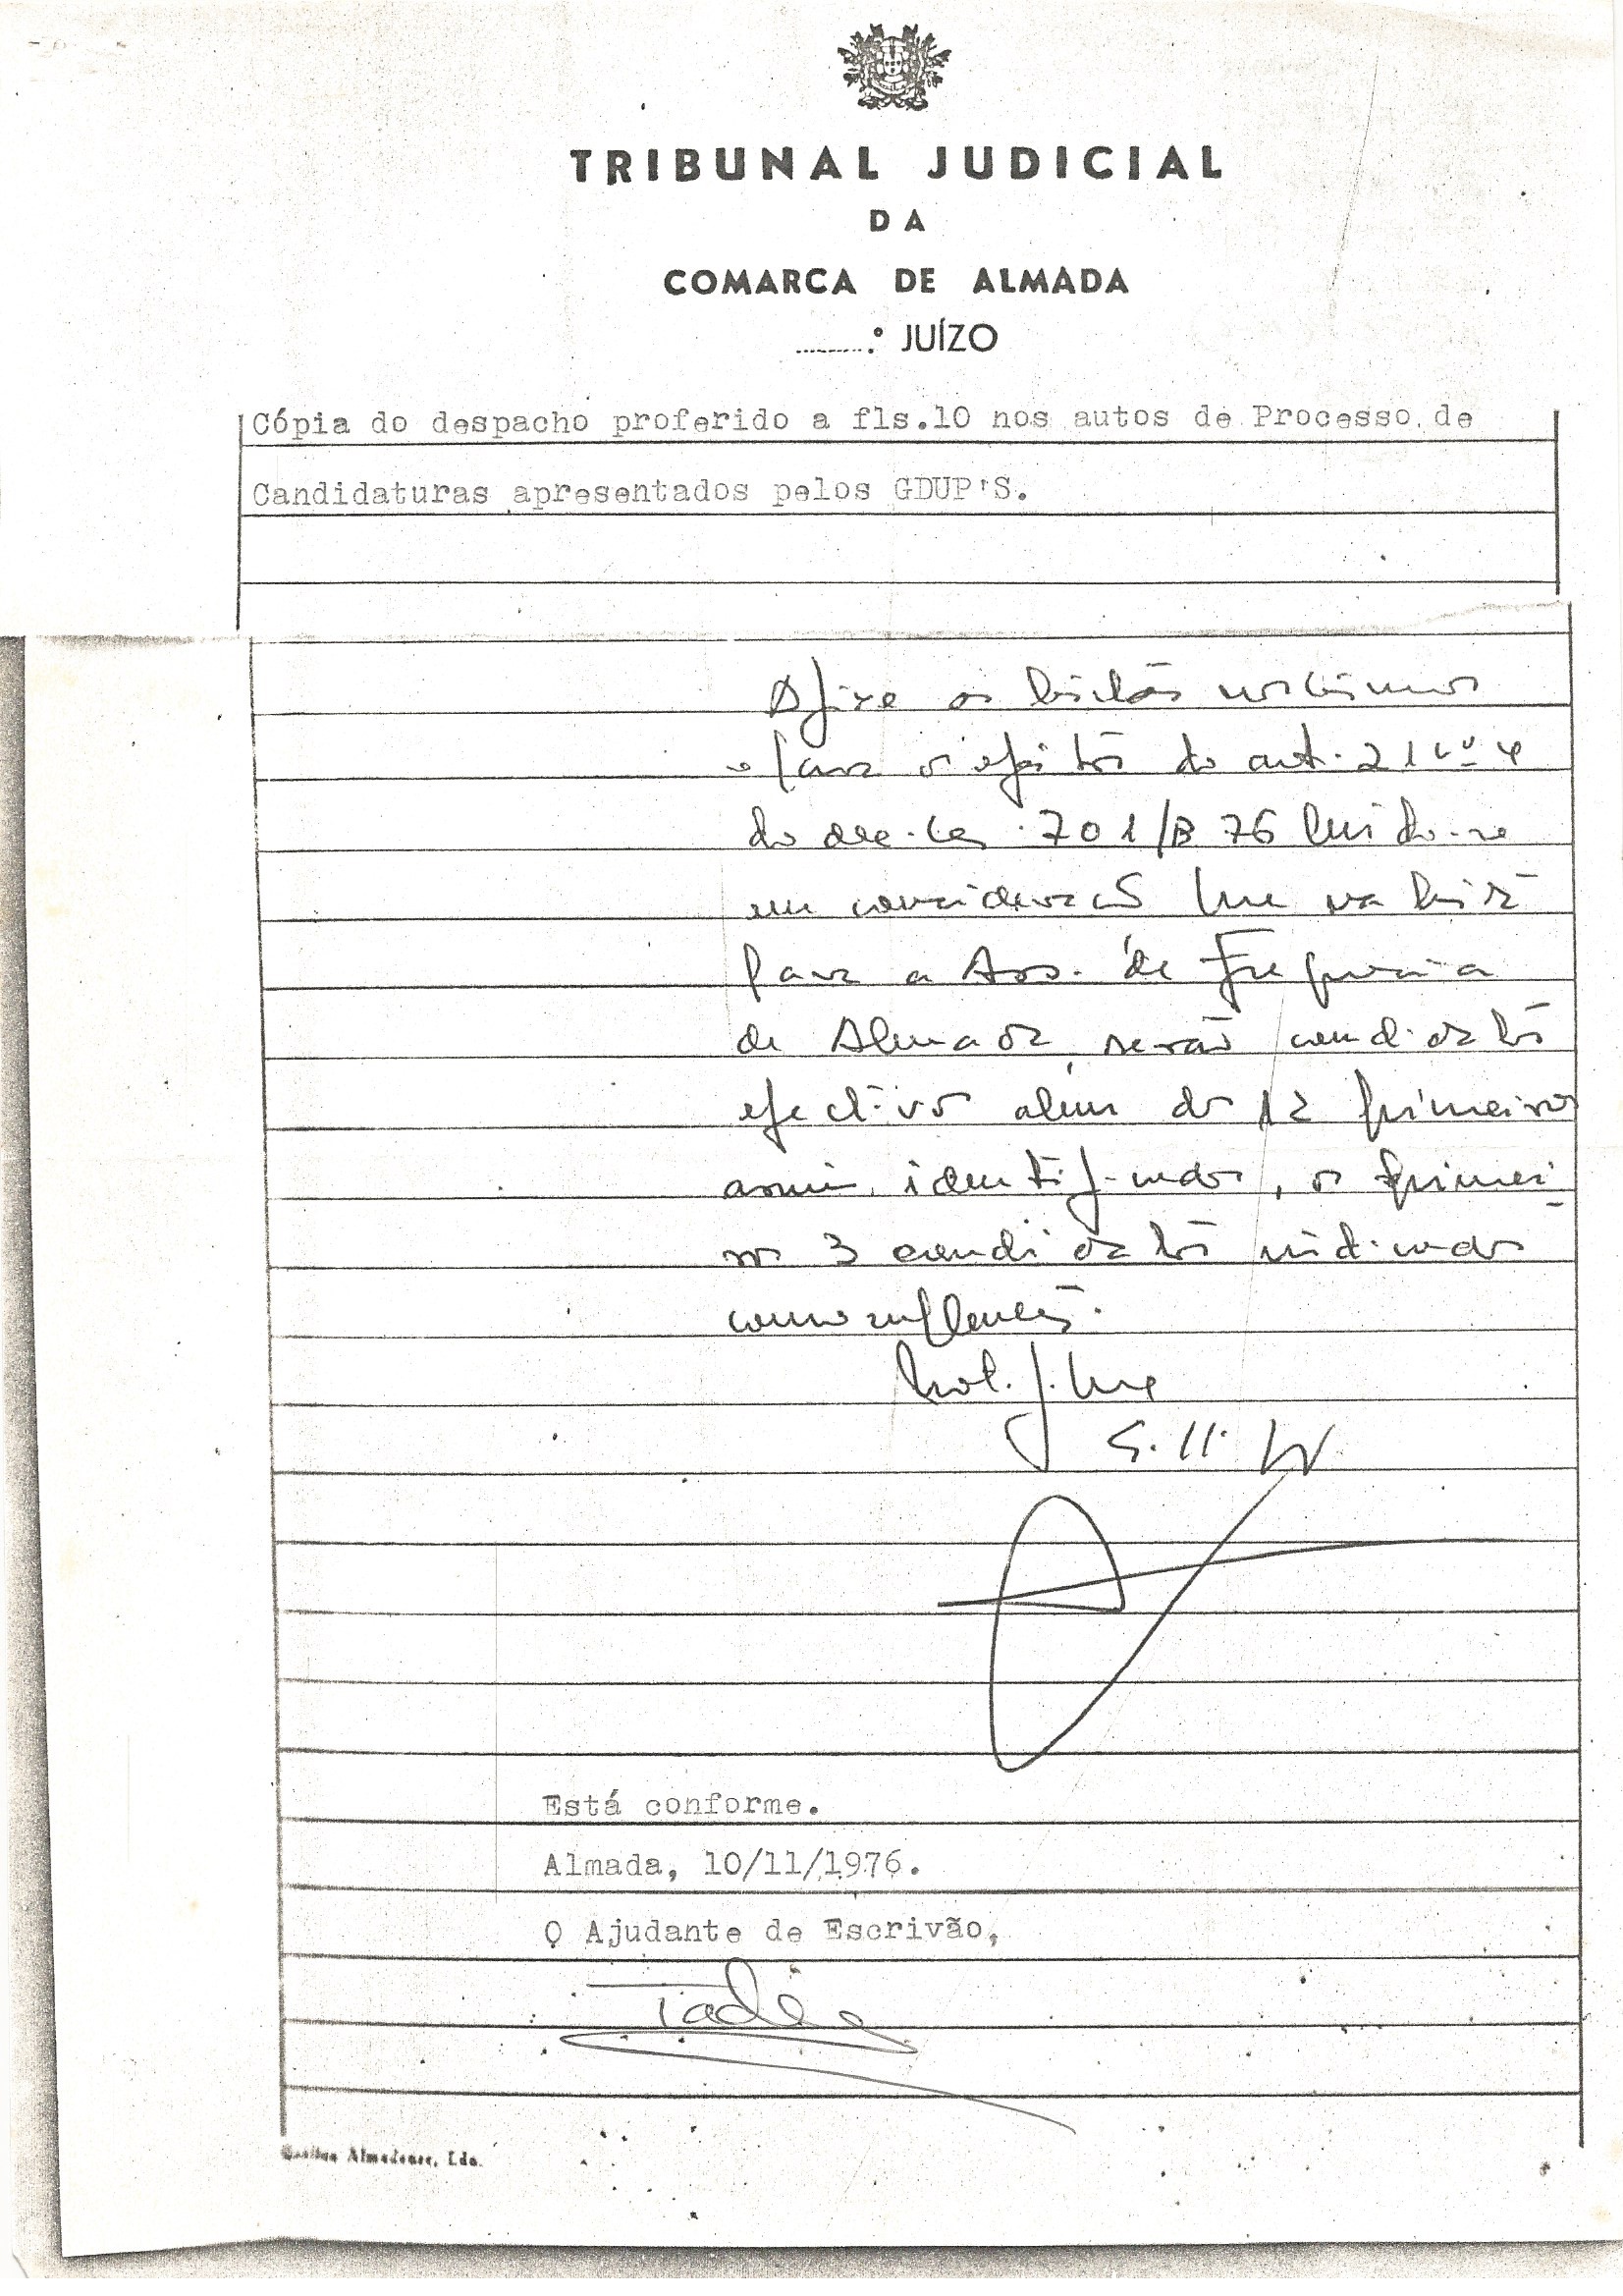 TRIBUNAL JUDICIAL
DA
COMARCA DE ALMADA
........º JUÍZO
Cópia do despacho proferido a fls.10 nos autos de Processo de
Candidaturas apresentados pelos GDUP'S.
Afixe as listas
e para os efeitos do art. 21 nº 4
do dec-lei 701/B 76
em consideração que na lista
para a Ass. de Freguesia
de Almada, serão candidatos
efectivos além dos 12 primeiros
assim identificados, os primei-
ros 3 candidatos indicados
como suplentes.
Está conforme.
Almada, 10/11/1976.
O Ajudante de Escrivão,
Almadense, Lda.